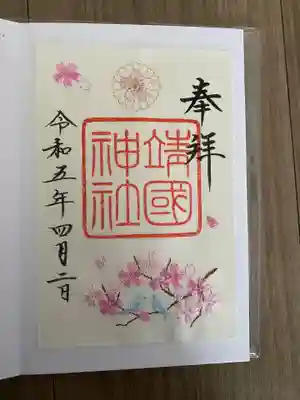 奉拝
靖國神社
令和五年四月二日